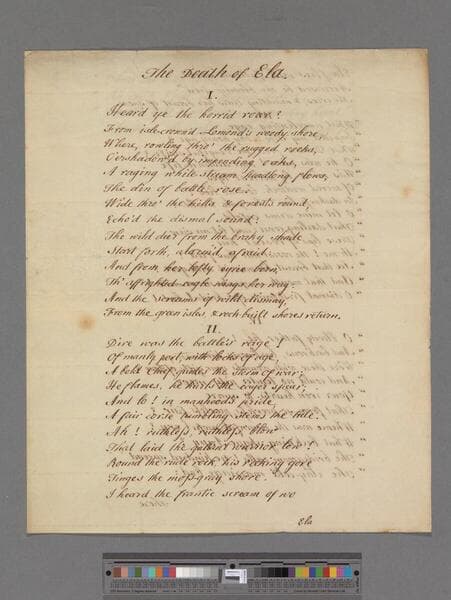 The Death of Ela.
I.
Heard ye the horrid roar?
From isle-crown'd Lomond's woody shore,
Where, rowling thro' the rugged rocks,
O'ershadow'd by impending oaks,
A raging white stream headlong flows,
The din of battle rose:
Wide thro' the hills & forests round,
Echo'd the dismal sound:
The wild deer from the braky shade
Start forth, alarm'd, afraid:
And from her lofty eyrie born,
Th' affrighted eagle wings her way
And the screams of wild dismay,
From the green isles, & rock-built shores return.
II.
Dire was the battle's rage
Of manly port, with locks of age,
A bold Chief guides the storm of war;
He flames, he the eager spear;
And lo! in manhood's pride,
A fair corse tumbling stems the tide.
Ah! ruthless, ruthless blow
That laid the gallant warrior low!
Round the rude rock his reeking gore
Tinges the moss-gray shore.
I heard the frantic scream of wo
Ela